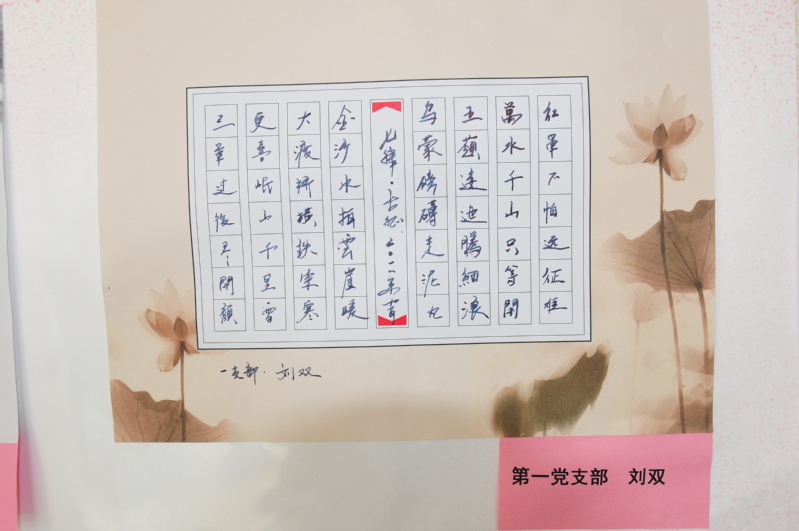 红軍不怕远征难
萬水千山只等閑
五嶺逶迤騰細浪
乌蒙磅礴走泥丸
七律·长征
金沙水拍雲崖暖
大渡桥横铁索寒
更喜岷山千里雪
三軍过後尽開顔
一支部·刘双
第一党支部 刘双